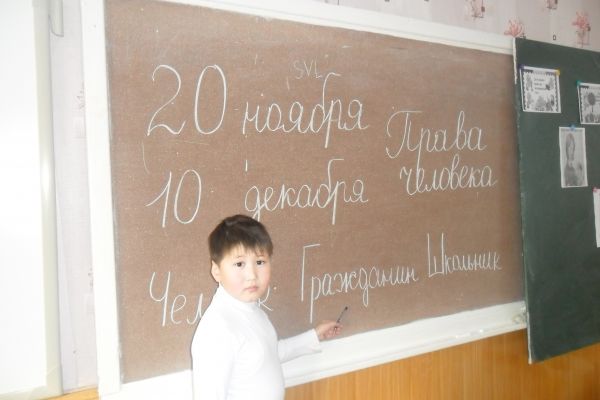 SVL
20 ноября
10 декабря
Права
человека
Гражданин Школьник